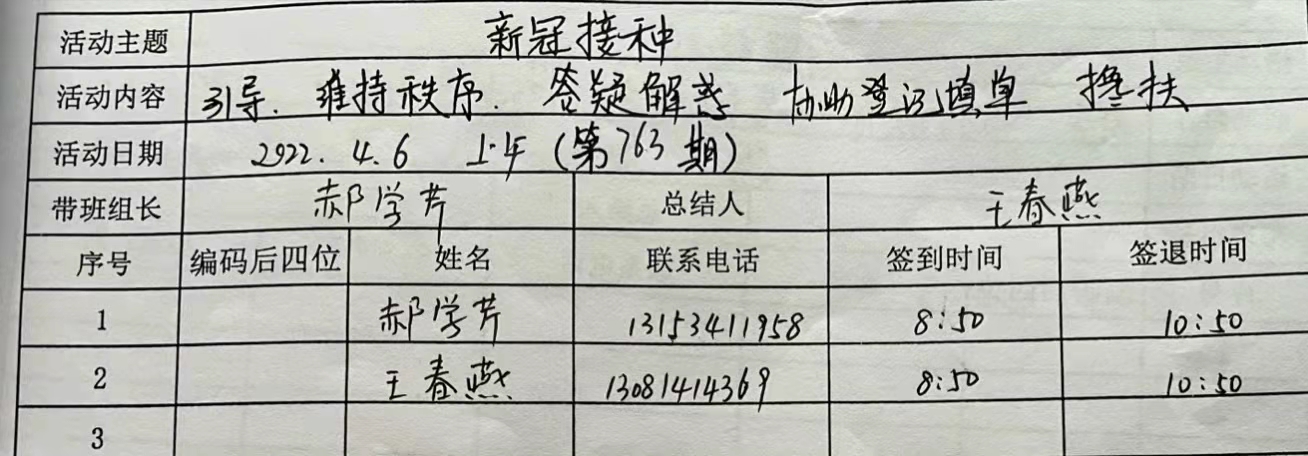 活动主题 新冠接种
活动内容 引导. 维持秩序. 答疑解惑 协助登记填单 搀扶
活动日期 2922. 4. 6 上午 (第763期)
带班组长 郝学芹 总结人 王春燕
序号 编码后四位 姓名 联系电话 签到时间 签退时间
1 郝学芹 13153411958 8:50 10:50
2 王春燕 13081414369 8:50 10:50
3